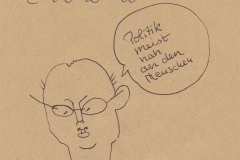 Politik
meist
nah
an den
Menschen